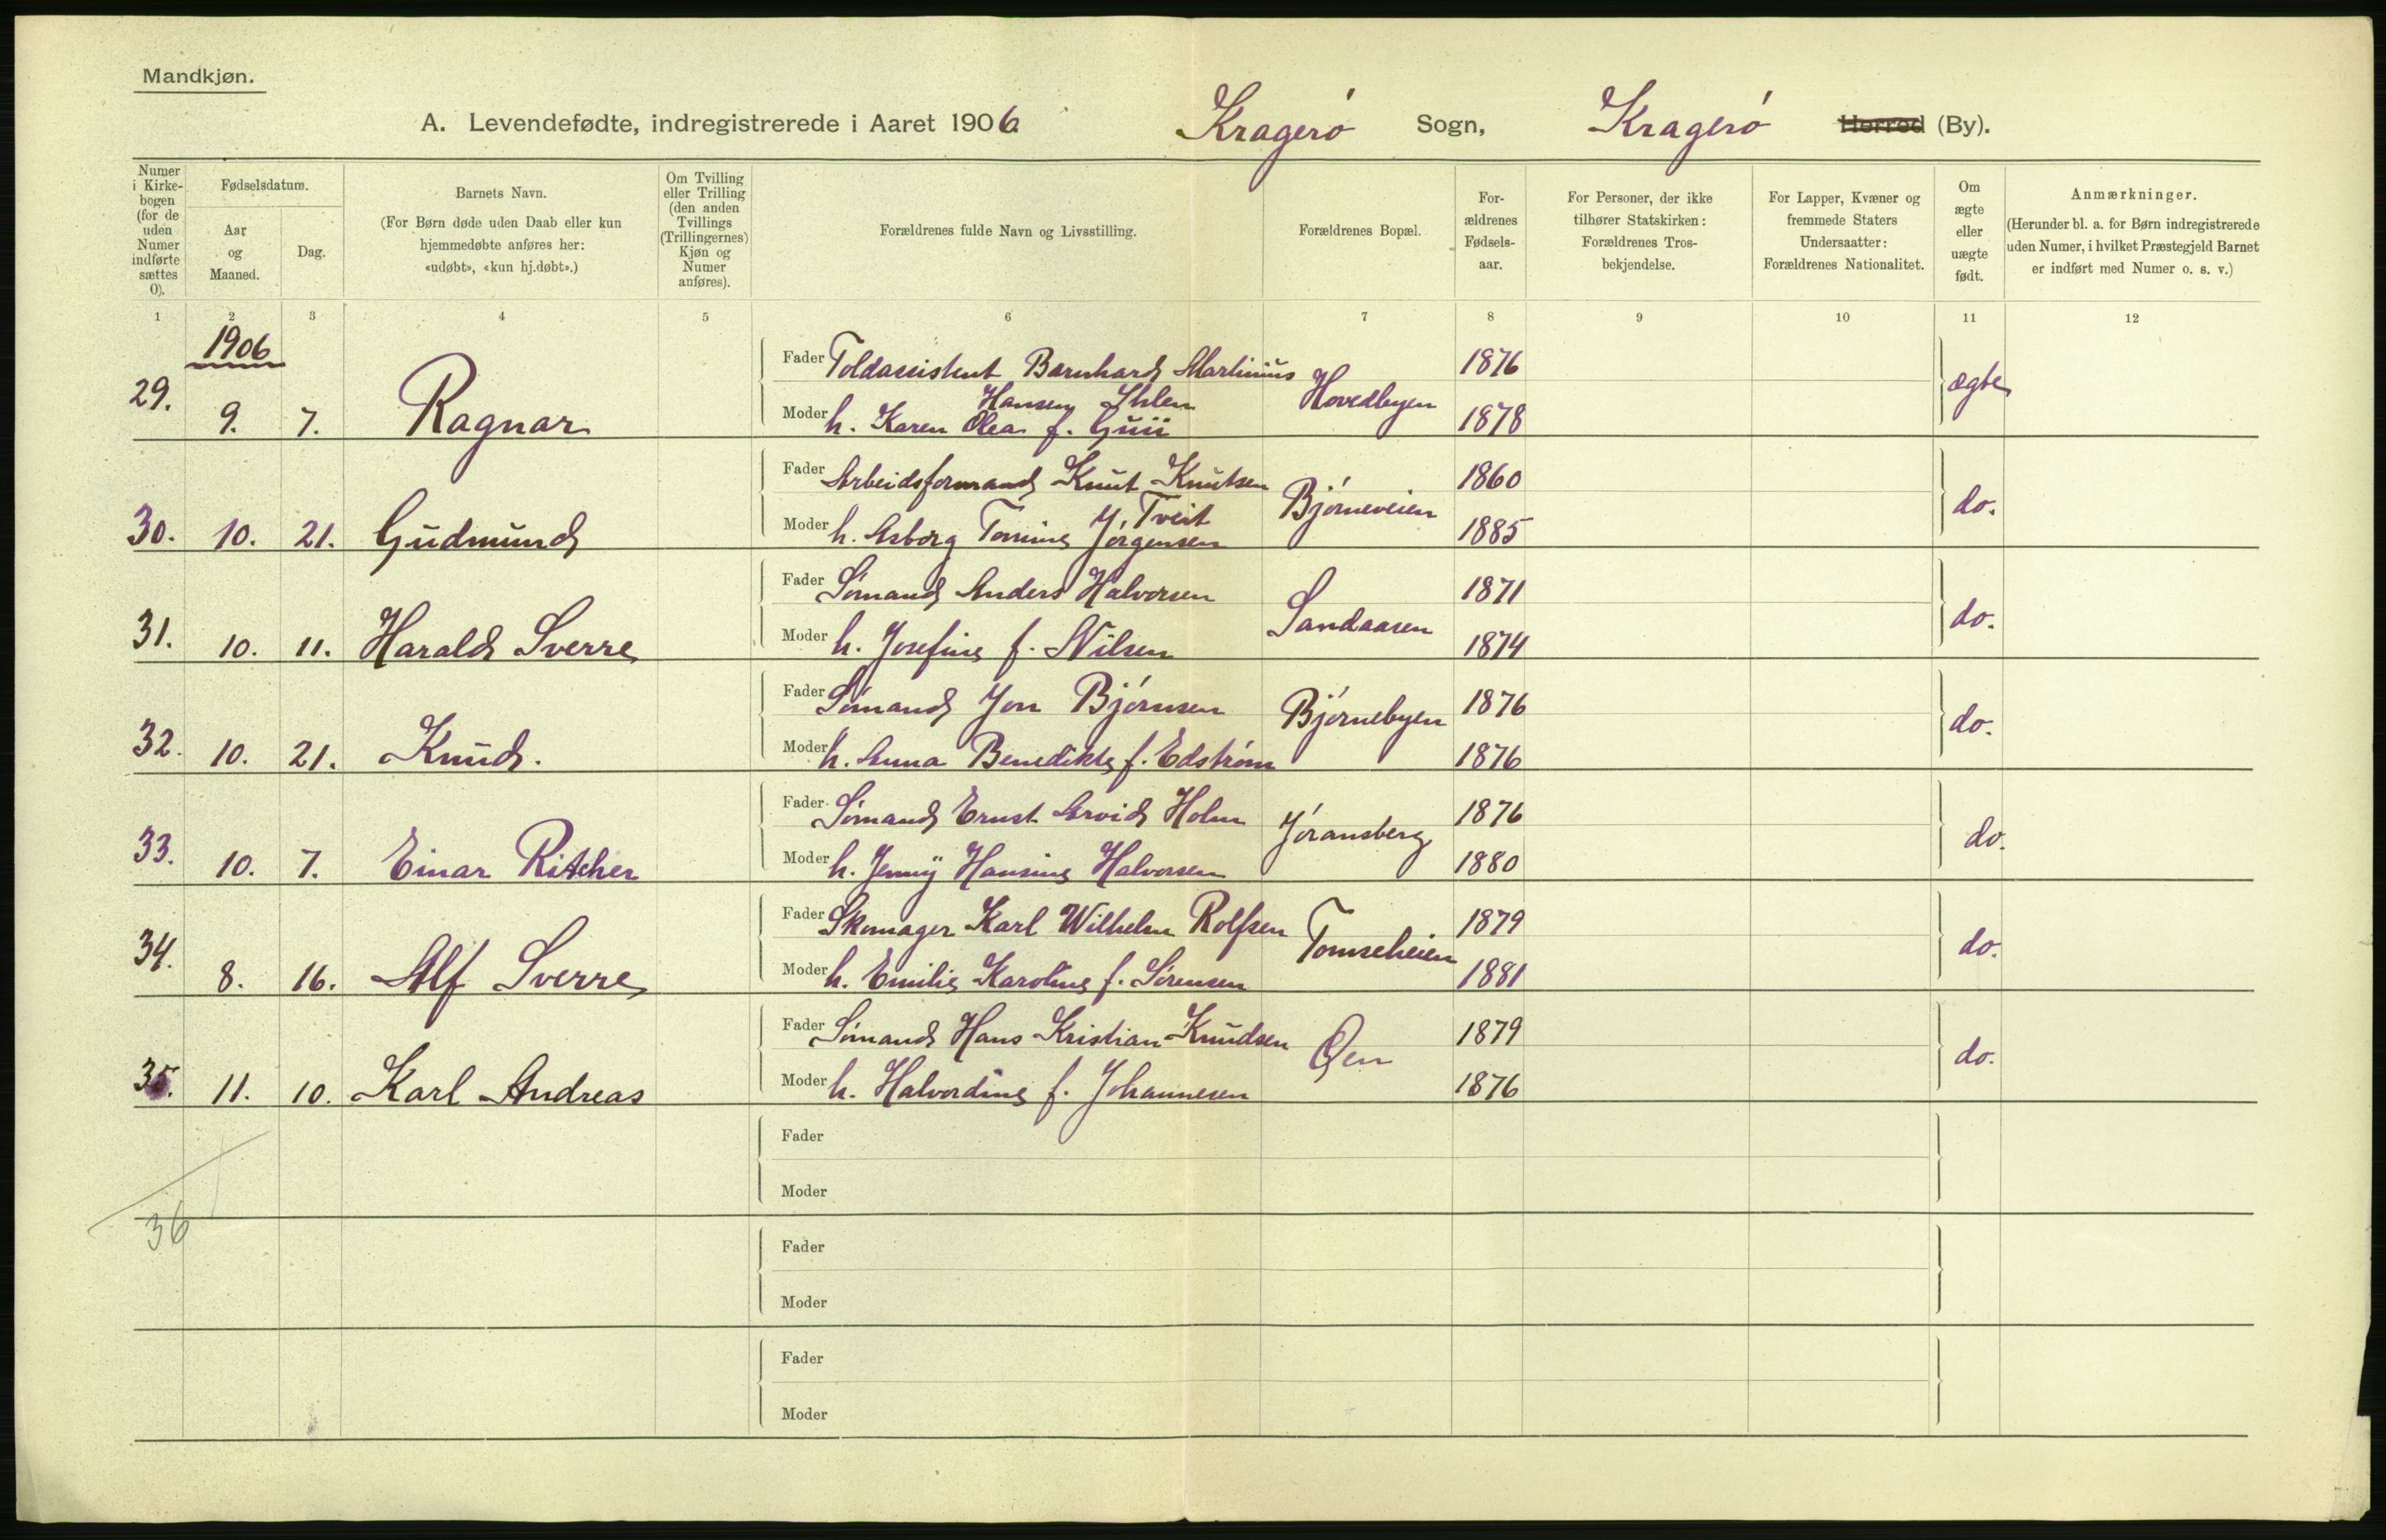 Mandkjøn.
A. Levendefødte, indregistrerede i Aaret 1906 Kragerø Sogn, Kragerø Herred (By).
Numer i Kirkebogen (for de uden Numer indførte sættes 0).
Fødselsdatum.
Aar og Maaned.
Dag.
Barnets Navn.
(For Børn døde uden Daab eller kun
hjemmedøbte anføres her:
«udøbt», «kun hj.døbt».)
Om Tvilling eller Trilling (den anden Tvillings (Trillingernes) Kjøn og Numer anføres).
Forældrenes fulde Navn og Livsstilling.
Forældrenes Bopæl.
For-
ældrenes
Fødsels-
aar.
For Personer, der ikke
tilhører Statskirken:
Forældrenes Tros-
bekjendelse.
For Lapper, Kvæner og
fremmede Staters
Undersaatter:
Forældrenes Nationalitet.
Om
ægte
eller
uægte
født.
Anmærkninger.
(Herunder bl. a. for Børn indregistrerede
uden Numer, i hvilket Præstegjeld Barnet
er indført med Numer o. s. v.)
1 2 3 4 5 6 7 8 9 10 11 12
1906
29. 9. 7. Ragnar
Fader Toldassistent Bernhard Martinius Hansen Ihlen Hovedbyen 1876 ægte
Moder h. Karen Olea f. 1878
30. 10. 21. Gudmund
Fader Arbeidsformand Knut Knutsen Tveit Bjørneveien 1860 do.
Moder h. Asborg Tomine Jørgensen 1885
31. 10. 11. Harald Sverre
Fader Sømand Anders Halvorsen Sandaasen 1871 do.
Moder h. Josefine f. Nilsen 1874
32. 10. 21. Knud.
Fader Sømand Jon Bjørnsen Bjørnebyen 1876 do.
Moder h. Anna Benedikte f. Edstrøm 1876
33. 10. 7. Einar Ritcher
Fader Sømand Ernst Arvid Holm Jøransberg 1876 do.
Moder h. Jenny Hansine Halvorsen 1880
34. 8. 16. Alf Sverre
Fader Skomager Karl Wilhelm Rolfsen Tomseheien 1879 do.
Moder h. Emilie Karoline f. Sørensen 1881
35. 11. 10. Karl Andreas
Fader Sømand Hans Kristian Knudsen Øen 1879 do.
Moder h. Halvordine f. Johannesen 1876
Fader
Moder
36
Fader
Moder
Fader
Moder